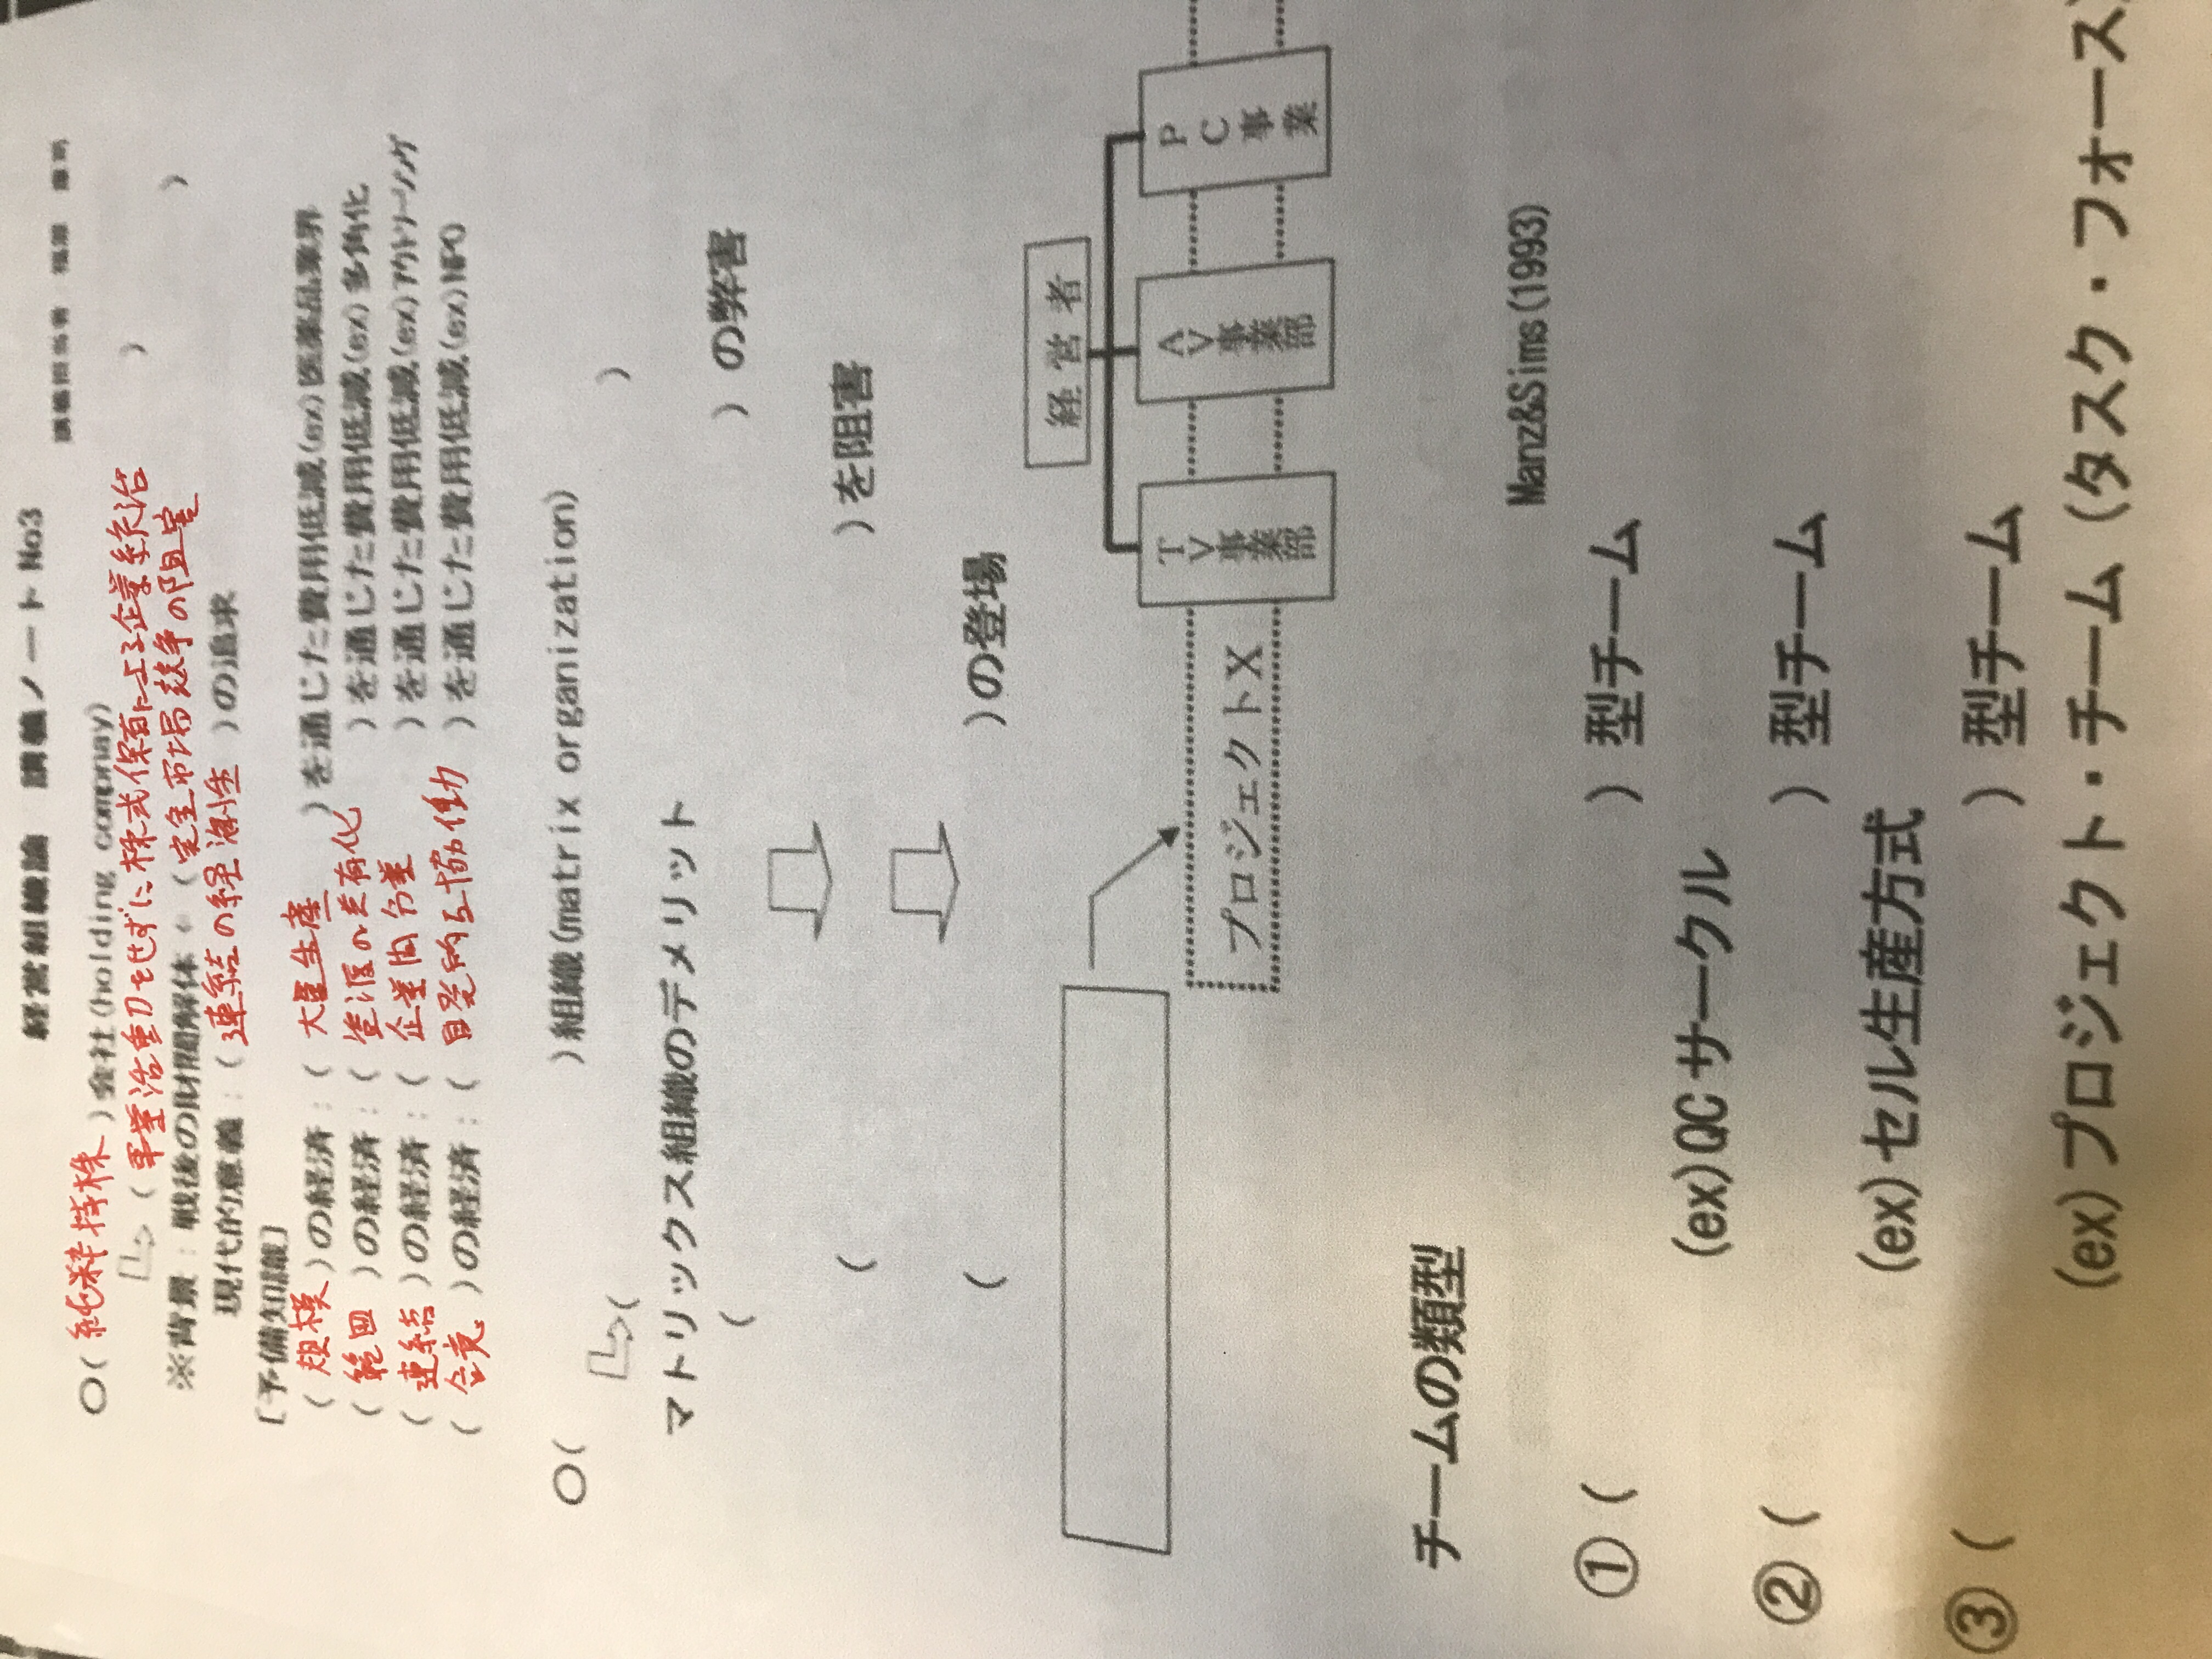 経営組織論 講義ノート No3
講義担当者 福原 康司
○( 純粋持株 )会社(holding compnay)
( 事業活動をせずに株式保有による企業統治 )
※背景：戦後の財閥解体 ⇐ ( 完全市場競争の阻害 )
現代的意義：( 連結の経済性 )の追求
[予備知識]
( 規模 )の経済：( 大量生産 )を通じた費用低減(ex)医薬品業界
( 範囲 )の経済：( 資源の共有化 )を通じた費用低減(ex)多角化
( 連結 )の経済：( 企業間分業 )を通じた費用低減(ex)アウトソーシング
( 合意 )の経済：( 自発的な協働 )を通じた費用低減(ex)NPO
○( )組織(matrix organization)
( )
マトリックス組織のデメリット
( ) の弊害
( )を阻害
( )の登場
経営者
プロジェクトX
TV事業部
AV事業部
PC事業
チームの類型
Manz&Sims(1993)
①( ) 型チーム
(ex)QCサークル
②( ) 型チーム
(ex)セル生産方式
③( ) 型チーム
(ex)プロジェクト・チーム（タスク・フォース）